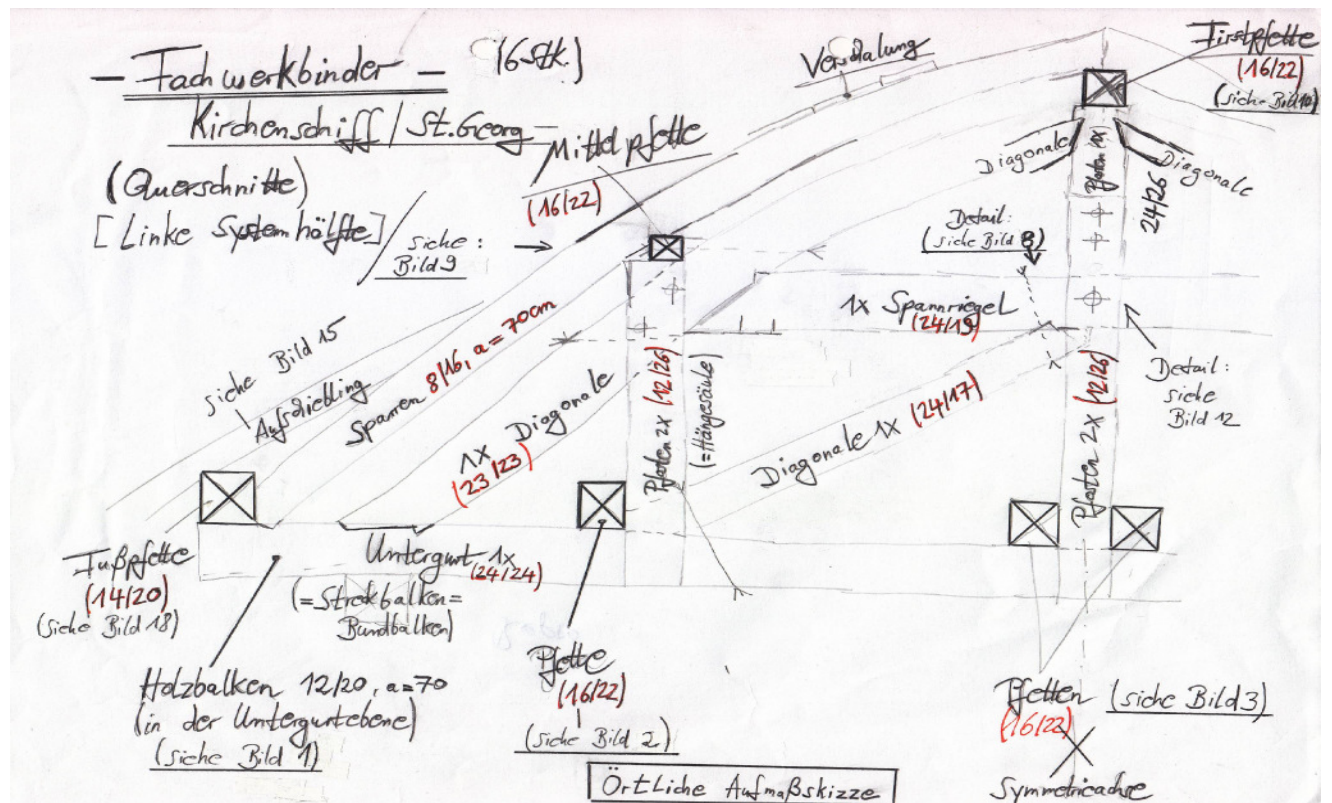 – Fachwerkbinder – (6 Stk.)
Kirchenschiff / St. Georg
(Querschnitte)
[Linke Systemhälfte]
siehe:
Bild 9
Mittelpfette
(16/22)
Verschalung
Firstpfette
(16/22)
(siehe Bild 10)
Diagonale
Pfosten 1x
Diagonale
24/26
Detail:
(siehe Bild 8)
1x Spannriegel
(24/19)
siehe Bild 15
Aufschiebling
Sparren 8/16, a = 70cm
1x Diagonale
(23/23)
Pfosten 2x (12/26)
(=Hängesäule)
Diagonale 1x (24/17)
Pfosten 2x (12/26)
Detail:
siehe
Bild 12
Fußpfette
(14/20)
(siehe Bild 18)
Untergurt 1x
(24/24)
(=Streckbalken=
Bundbalken)
Holzbalken 12/20, a=70
(in der Untergurtebene)
(siehe Bild 1)
Pfette
(16/22)
(siehe Bild 2)
Pfetten (siehe Bild 3)
(16/22)
Symmetrieachse
Örtliche Aufmaßskizze